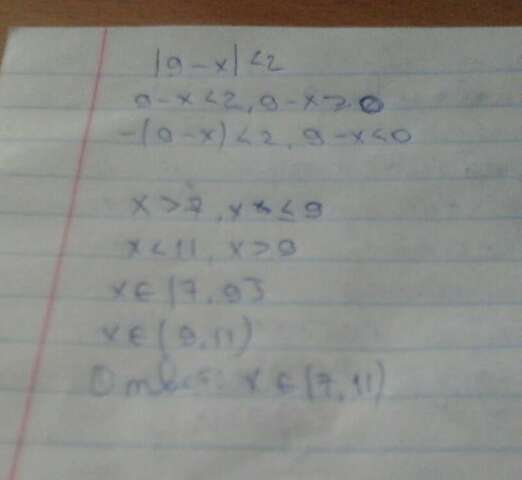 |9-x|<2
9-x<2, 9-x≥0
-(9-x)<2, 9-x<0
x>7, x≤9
x<11, x>9
x∈(7,9]
x∈(9,11)
Ответ: x∈(7,11)